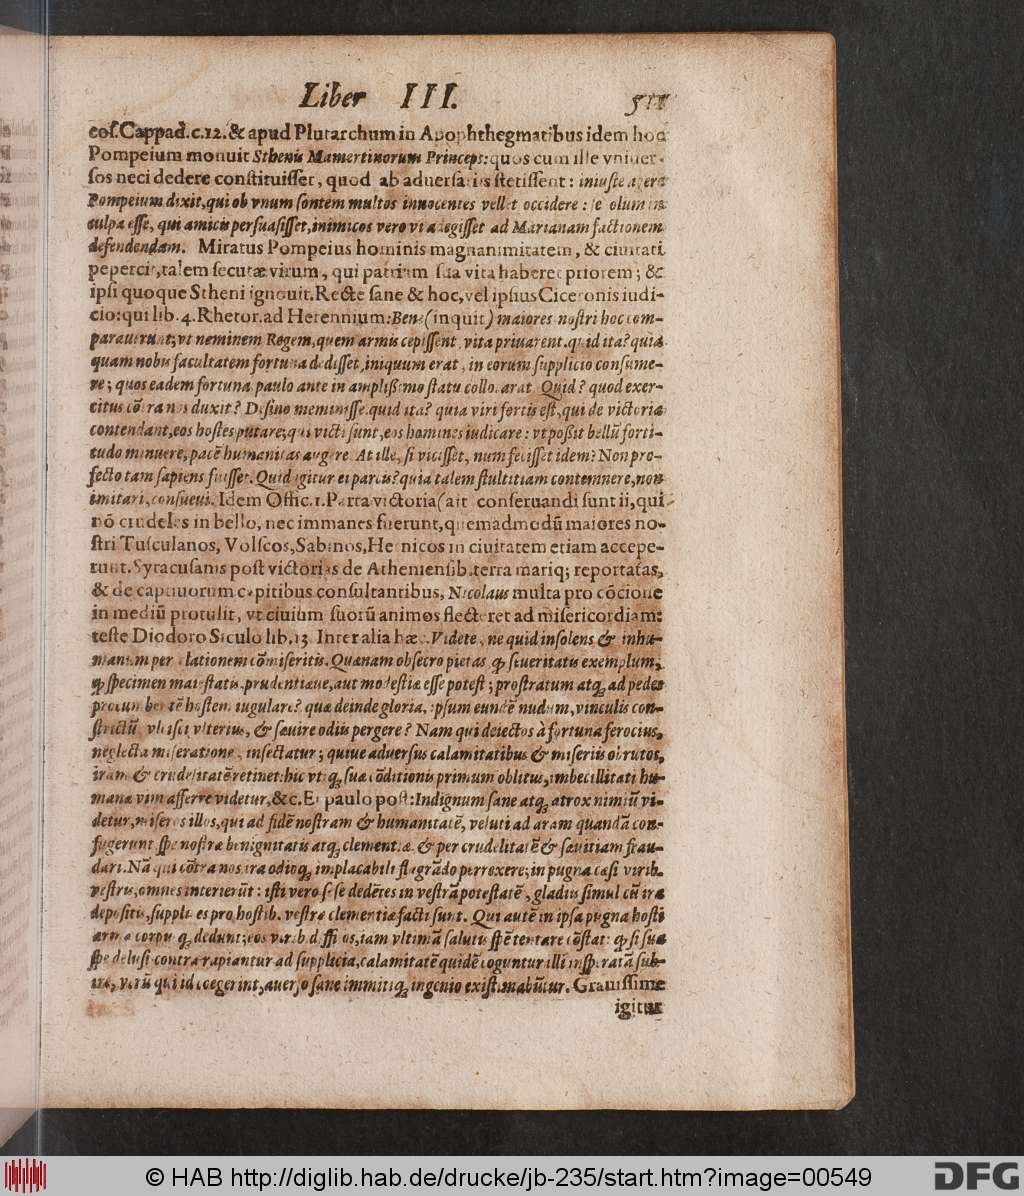 Liber III. 511
eoſ. Cappad. c.12. & apud Plutarchum in Apophthegmatibus idem hoc
Pompeium monuit Sthenis Mamertinorum Princeps: quos cum ille vniuer-
ſos neci dedere conſtituiſſet, quod ab aduerſariis ſtetiſſent: iniuſte agere
Pompeium dixit, qui ob vnum ſontem multos innocentes vellet occidere: ſe ſolum in
culpa eſſe, qui amicis perſuaſiſſet, inimicos vero vi adegiſſet ad Marianam factionem
defendendam. Miratus Pompeius hominis magnanimitatem, & ciuitati
pepercit, talem ſecutæ virum, qui patriam ſua vita haberet priorem; &
ipſi quoque Stheni ignouit. Recte ſane & hoc, vel ipſius Ciceronis iudi-
cio: qui lib. 4. Rhetor. ad Herennium: Bene (inquit) maiores noſtri hoc com-
parauerunt; vt neminem Regem, quem armis cepiſſent, vita priuarent. quid ita? quia
quam nobis facultatem fortuna dediſſet, iniquum erat, in eorum ſupplicio conſume-
re; quos eadem fortuna paulo ante in ampliſsimo ſtatu collocarat. Quid? quod exer-
citus cõtra nos duxit? Deſino meminiſſe. quid ita? quia viri fortis eſt, qui de victoria
contendant, eos hoſtes putare; qui victi ſunt, eos homines iudicare: vt poßit bellũ forti-
tudo minuere, pacẽ humanitas augere. At ille, ſi viciſſet, num feciſſet idem? Non pro-
fecto tam ſapiens fuiſſet. Quid igitur ei parcis? quia talem ſtultitiam contemnere, non
imitari, conſueui. Idem Offic. 1. Parta victoria (ait) conſeruandi ſunt ii, qui
nõ crudeles in bello, nec immanes fuerunt, quemadmodũ maiores no-
ſtri Tuſculanos, Volſcos, Sabinos, Hernicos in ciuitatem etiam accepe-
runt. Syracuſanis poſt victorias de Athenienſib. terra mariq; reportatas,
& de captiuorum capitibus conſultantibus, Nicolaus multa pro cõcione
in mediũ protulit, vt ciuium ſuorũ animos flecteret ad miſericordiam:
teſte Diodoro Siculo lib. 13. Inter alia hæc. Videte, ne quid inſolens & inhu-
manum per elationem cõmiſeritis. Quanam obſecro pietas, q́; ſeueritatis exemplum,
q́; ſpecimen maieſtatis, prudentiæue, aut modeſtiæ eſſe poteſt; proſtratum atq; ad pedes
procumbentẽ hoſtem iugulare? quæ deinde gloria, ipſum eundẽ nudum, vinculis con-
ſtrictũ vlciſci vlterius, & ſæuire odiis pergere? Nam qui deiectos à fortuna ferocius,
neglecta miſeratione, inſectatur; quiue aduerſus calamitatibus & miſeriis obrutos,
iram & crudelitatẽ retinet: hic vtiq; ſuæ cõditionis primum oblitus, imbecillitati hu-
manæ vim afferre videtur, &c. Et paulo poſt: Indignum ſane atq; atrox nimiũ vi-
detur, miſeros illos, qui ad fidẽ noſtram & humanitatẽ, veluti ad aram quandã con-
fugerunt ſpe noſtræ benignitatis atq; clementiæ, & per crudelitatẽ & ſæuitiam frau-
dari. Nã qui cõtra nos ira odioq; implacabili flagrãdo perrexere; in pugna cæſi virib.
veſtris, omnes interierũt: iſti vero ſeſe dedẽtes in veſtrã poteſtatẽ, gladiis ſimul cũ ira
depoſitis, ſupplices pro hoſtib. veſtræ clementiæ facti ſunt. Qui autẽ in ipſa pugna hoſti
arma corpuſq; dedunt; eos virib. diffiſos, iam vltimã ſalutis ſpẽ tentare cõſtat: q́; ſi ſua
ſpe deluſi contra rapiantur ad ſupplicia, calamitatẽ quidẽ coguntur illi inſperatã ſub-
ire, verũ qui id coegerint, auerſo ſane immitiq; ingenio exiſtimabũtur. Grauiſſime
igitur
© HAB http://diglib.hab.de/drucke/jb-235/start.htm?image=00549
DFG